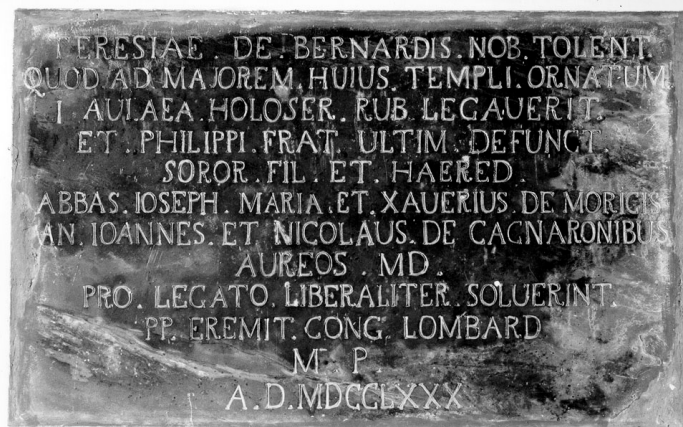 TERESIAE . DE . BERNARDIS . NOB . TOLENT .
QUOD . AD . MAJOREM . HUIUS . TEMPLI . ORNATUM
AULAEA . HOLOSER . RUB . LEGAUERIT .
ET . PHILIPPI . FRAT . ULTIM . DEFUNCT .
SOROR . FIL . ET . HAERED .
ABBAS . IOSEPH . MARIA . ET . XAUERIUS . DE MORICIS
AN . IOANNES . ET NICOLAUS . DE CAGNARONIBUS
AUREOS . MD .
PRO . LEGATO . LIBERALITER . SOLUERINT .
PP . EREMIT . CONG . LOMBARD
M . P .
A . D . MDCCLXXX